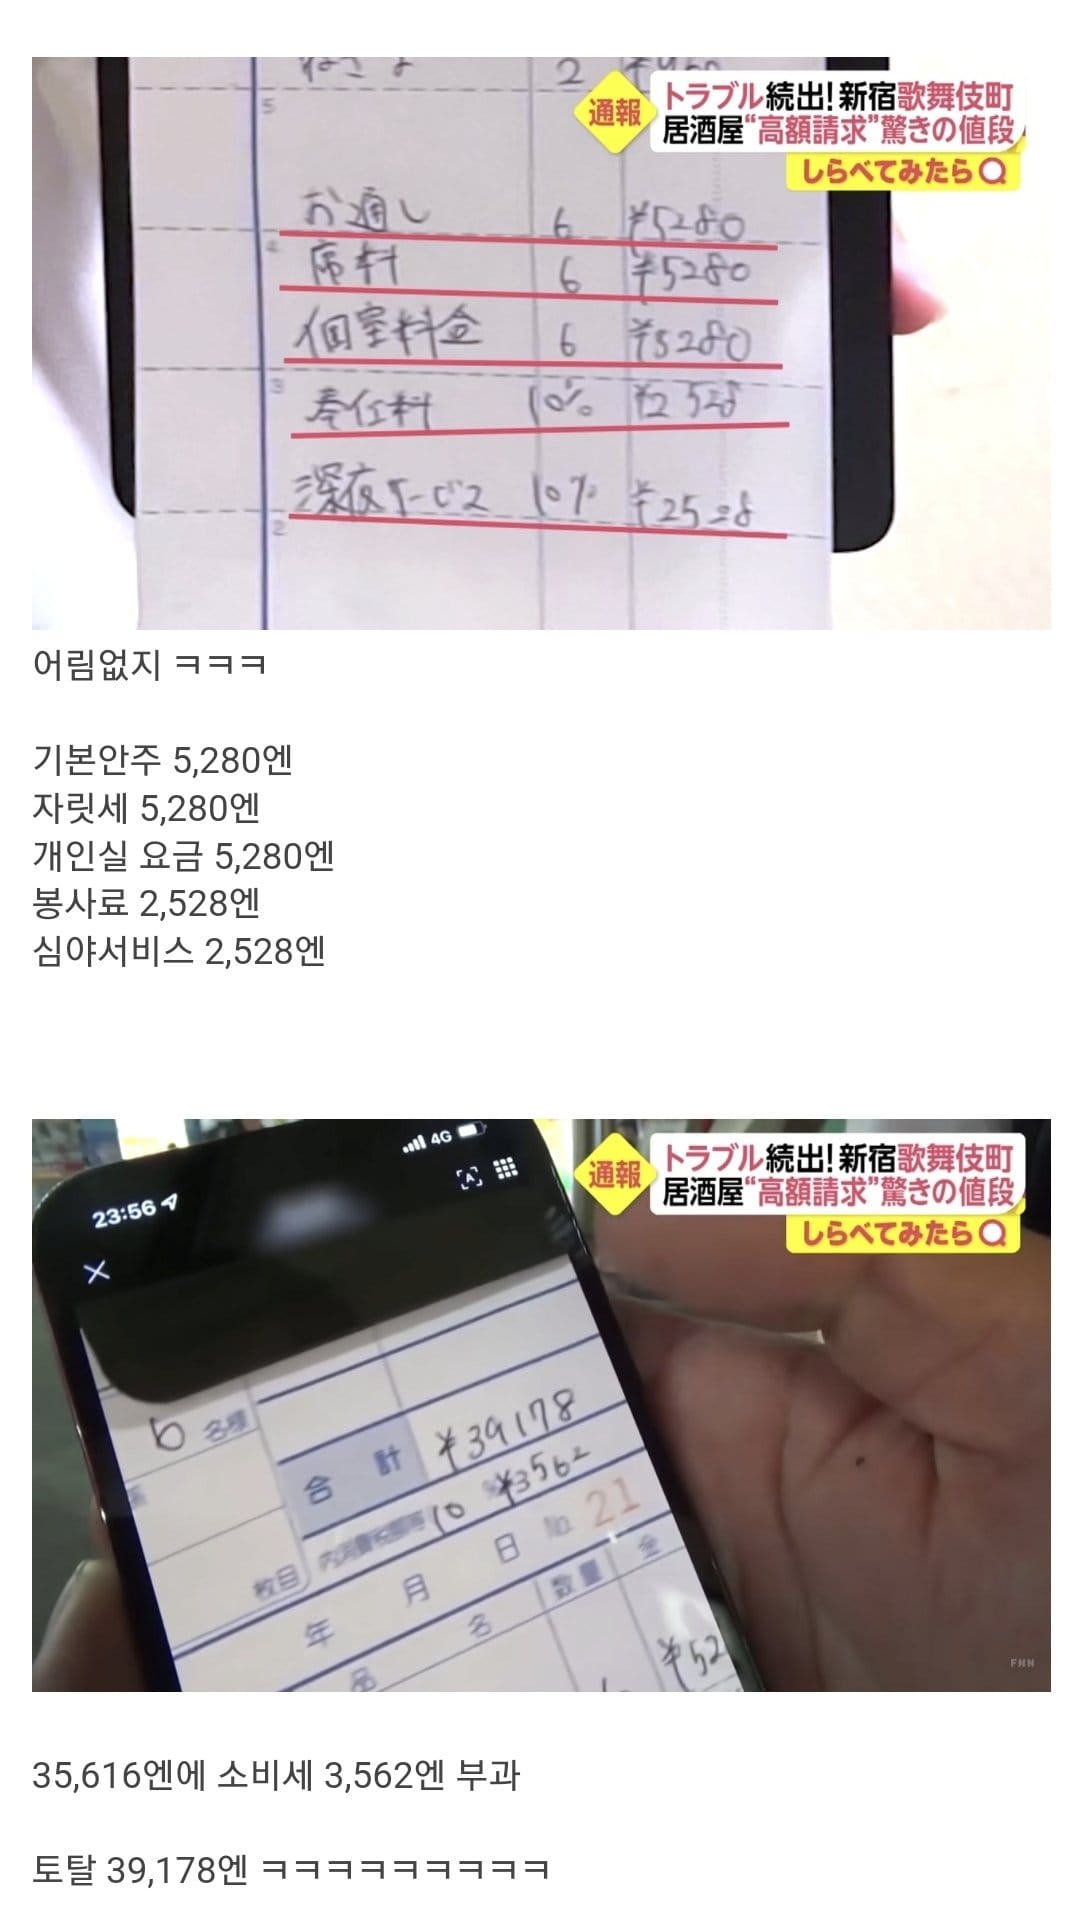 2
通報
トラブル続出!新宿歌舞伎町
居酒屋“高額請求”驚きの値段
しらべてみたら
5
お通し 6 ¥5280
4
席料 6 ¥5280
個室料金 6 ¥5280
3
奉仕料 10% ¥2528
深夜サービス 10% ¥2528
2
어림없지 ㅋㅋㅋ
기본안주 5,280엔
자릿세 5,280엔
개인실 요금 5,280엔
봉사료 2,528엔
심야서비스 2,528엔
4G
23:56
通報
トラブル続出!新宿歌舞伎町
居酒屋“高額請求”驚きの値段
しらべてみたら
6 名様
合計 ¥39178
内消費税額等 10 % ¥3562
枚目
年 月 日 No. 21
品名 数量 金
¥52
FNN
35,616엔에 소비세 3,562엔 부과
토탈 39,178엔 ㅋㅋㅋㅋㅋㅋㅋㅋㅋ